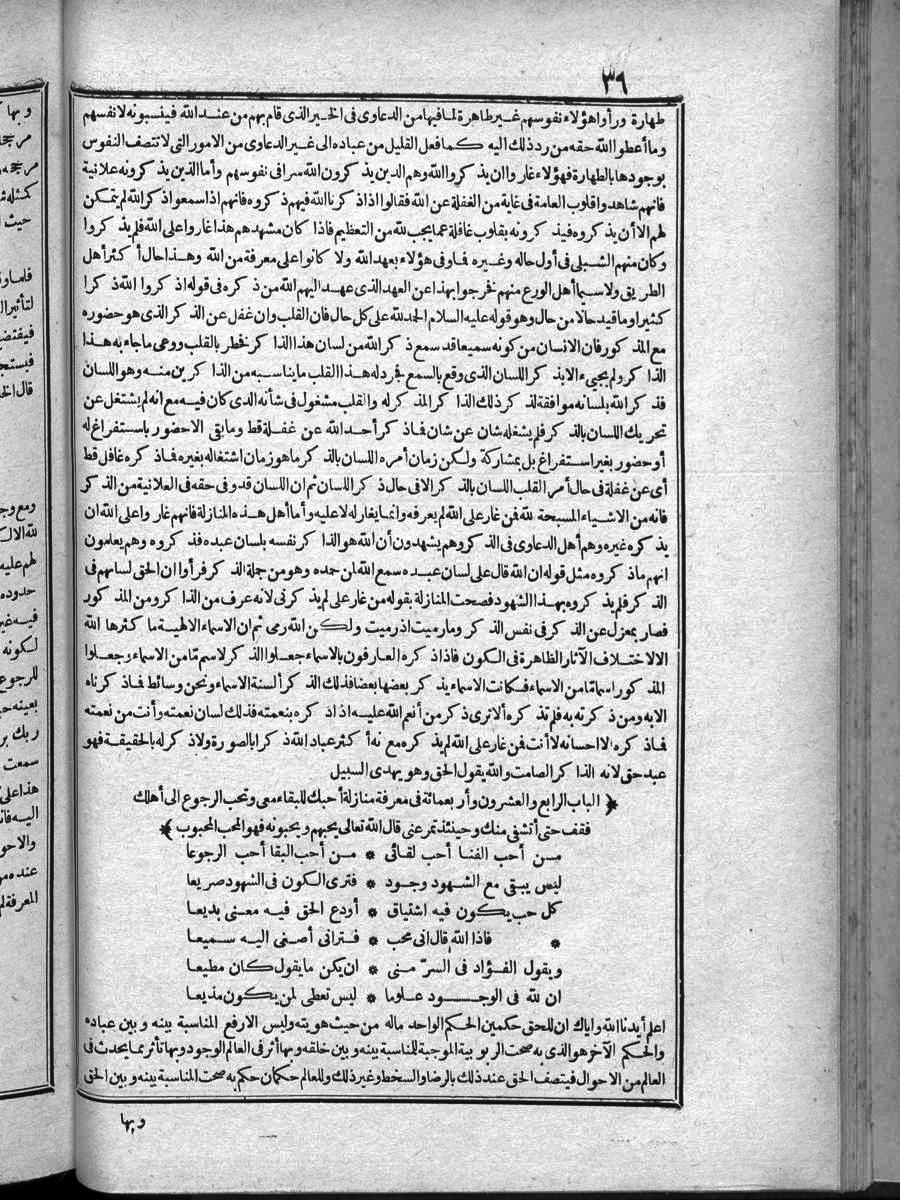 ٣٦
طهارة ورأوا هؤلاء نفوسهم غير طاهرة لما فيها من الدعاوى فى الخير الذى قام بهم من عند الله فينسبونه لانفسهم
وما أعطوا الله حقه من رد ذلك اليه كما فعل القليل من عباده الى غير الدعاوى من الامور التى لا تتصف النفوس
بوجودها بالطهارة فهؤلاء غاروا ان يذكروا الله وهم الذين يذكرون الله سرا فى نفوسهم وأما الذين يذكرونه علانية
فانهم شاهدوا قلوب العامة فى غاية من الغفلة عن الله فقالوا اذا ذكرنا الله فيهم ذكروه فانهم اذا سمعوا ذكر الله لم يتمكن
لهم الا أن يذكروه فيذكرونه بقلوب غافلة عما يجب لله من التعظيم فاذا كان مشهدهم هذا غاروا على الله فلم يذكروا
وكان منهم الشبلى فى أول حاله وغيره فما وفى هؤلاء بعهد الله ولا كانوا على معرفة من الله وهذا حال أكثر أهل
الطريق ولا سيما أهل الورع منهم فخرجوا بهذا عن العهد الذى عهد اليهم الله من ذكره فى قوله اذكروا الله ذكرا
كثيرا وما قيد حالا من حال وهو قوله عليه السلام الحمد لله على كل حال فان القلب وان غفل عن الذكر الذى هو حضوره
مع المذكور فان الانسان من كونه سميعا قد سمع ذكر الله من لسان هذا الذاكر فخطر بالقلب ووعى ما جاء به هذا
الذاكر ولم يجىء الا بذكر اللسان الذى وقع بالسمع فجرد له هذا القلب ما يناسبه من الذاكرين منه وهو اللسان
فذكر الله بلسانه موافقة لذكر ذلك الذاكر المذكر له والقلب مشغول فى شأنه الذى كان فيه مع انه لم يشتغل عن
تحريك اللسان بالذكر فلم يشغله شان عن شان فما ذكر أحد الله عن غفلة قط وما بقى الا حضور باستفراغ له
أو حضور بغير استفراغ بل بمشاركة ولكن زمان أمره اللسان بالذكر ما هو زمان اشتغاله بغيره فما ذكره غافل قط
أى عن غفلة فى حال أمر القلب اللسان بالذكر الا فى حال ذكر اللسان ثم ان اللسان قد وفى حقه فى العلانية من الذكر
فانه من الاشياء المسبحة لله فمن غار على الله لم يعرفه وانما يغار له لا عليه وأما أهل هذه المنازلة فانهم غاروا على الله ان
يذكره غيره وهم أهل الدعاوى فى الذكر وهم يشهدون أن الله هو الذاكر نفسه بلسان عبده فذكروه وهم يعلمون
انهم ما ذكروه مثل قوله ان الله قال على لسان عبده سمع الله لمن حمده وهو من جملة الذكر فرأوا ان الحق لسانهم فى
الذكر فلم يذكروه بهذا الشهود فصحت المنازلة بقوله من غار على لم يذكرنى لانه عرف من الذاكر ومن المذكور
فصار بمعزل عن الذكر فى نفس الذكر وما رميت اذ رميت ولكن الله رمى ثم ان الاسماء الالهية ما كثرها الله
الا لاختلاف الآثار الظاهرة فى الكون فاذا ذكره العارفون بالاسماء جعلوا الذكر لاسم ما من الاسماء وجعلوا
المذكور اسما ما من الاسماء فكانت الاسماء يذكر بعضها بعضا فذلك الذكر ألسنة الاسماء ونحن وسائط فما ذكرناه
الا به ومن ذكرته به فلم تذكره ألا ترى ذكر من أنعم الله عليه اذا ذكره بنعمته فذلك لسان نعمته وأنت من نعمته
فما ذكره الا احسانه لا أنت فمن غار على الله لم يذكره مع نه أكثر عباد الله ذكرا بالصورة ولا ذكر له بالحقيقة فهو
عبد حق لانه الذاكر الصامت والله يقول الحق وهو يهدى السبيل
﴿ الباب الرابع والعشرون وأربعمائة فى معرفة منازلة أحبك للبقاء معى وتحب الرجوع الى أهلك
فقف حتى أتشفى منك وحينئذ تمر عنى قال الله تعالى يحبهم ويحبونه فهو المحب المحبوب ﴾
من أحب الفنا أحب لقائى * من أحب البقا أحب الرجوعا
ليس يبقى مع الشهود وجود * فترى الكون فى الشهود صريعا
كل حب يكون فيه اشتياق * أودع الحق فيه معنى بديعا
* فاذا الله قال انى محب * فترانى أصغى اليه سميعا
ويقول الفؤاد فى السر منى * ان يكن ما يقول كان مطيعا
ان لله فى الوجود علوما * ليس تعطى لمن يكون مذيعا
اعلم أيدنا الله واياك ان للحق حكمين الحكم الواحد ماله من حيث هويته وليس الا رفع المناسبة بينه وبين عباده
والحكم الآخر هو الذى به صحت الربوبية الموجبة للمناسبة بينه وبين خلقه وبها أثر فى العالم الوجود وبها تأثر بما يحدث فى
العالم من الاحوال فيتصف الحق عند ذلك بالرضا والسخط وغير ذلك وللعالم حكمان حكم به صحت المناسبة بينه وبين الحق
وبها